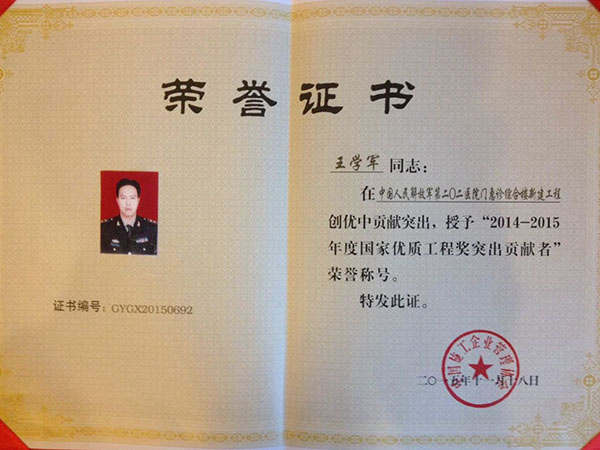 荣誉证书
王学军 同志：
在 中国人民解放军第二〇二医院门急诊综合楼新建工程
创优中贡献突出，授予“2014—2015
年度国家优质工程奖突出贡献者”
荣誉称号。
特发此证。
证书编号：GYGX20150692
中国施工企业管理协会
二〇一五年十一月十八日